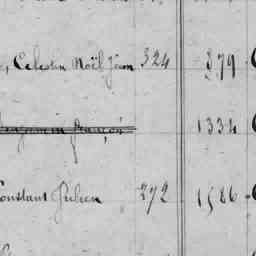 , Celestin Noël Jean 324 379
1334
Constant Julien 272 1586